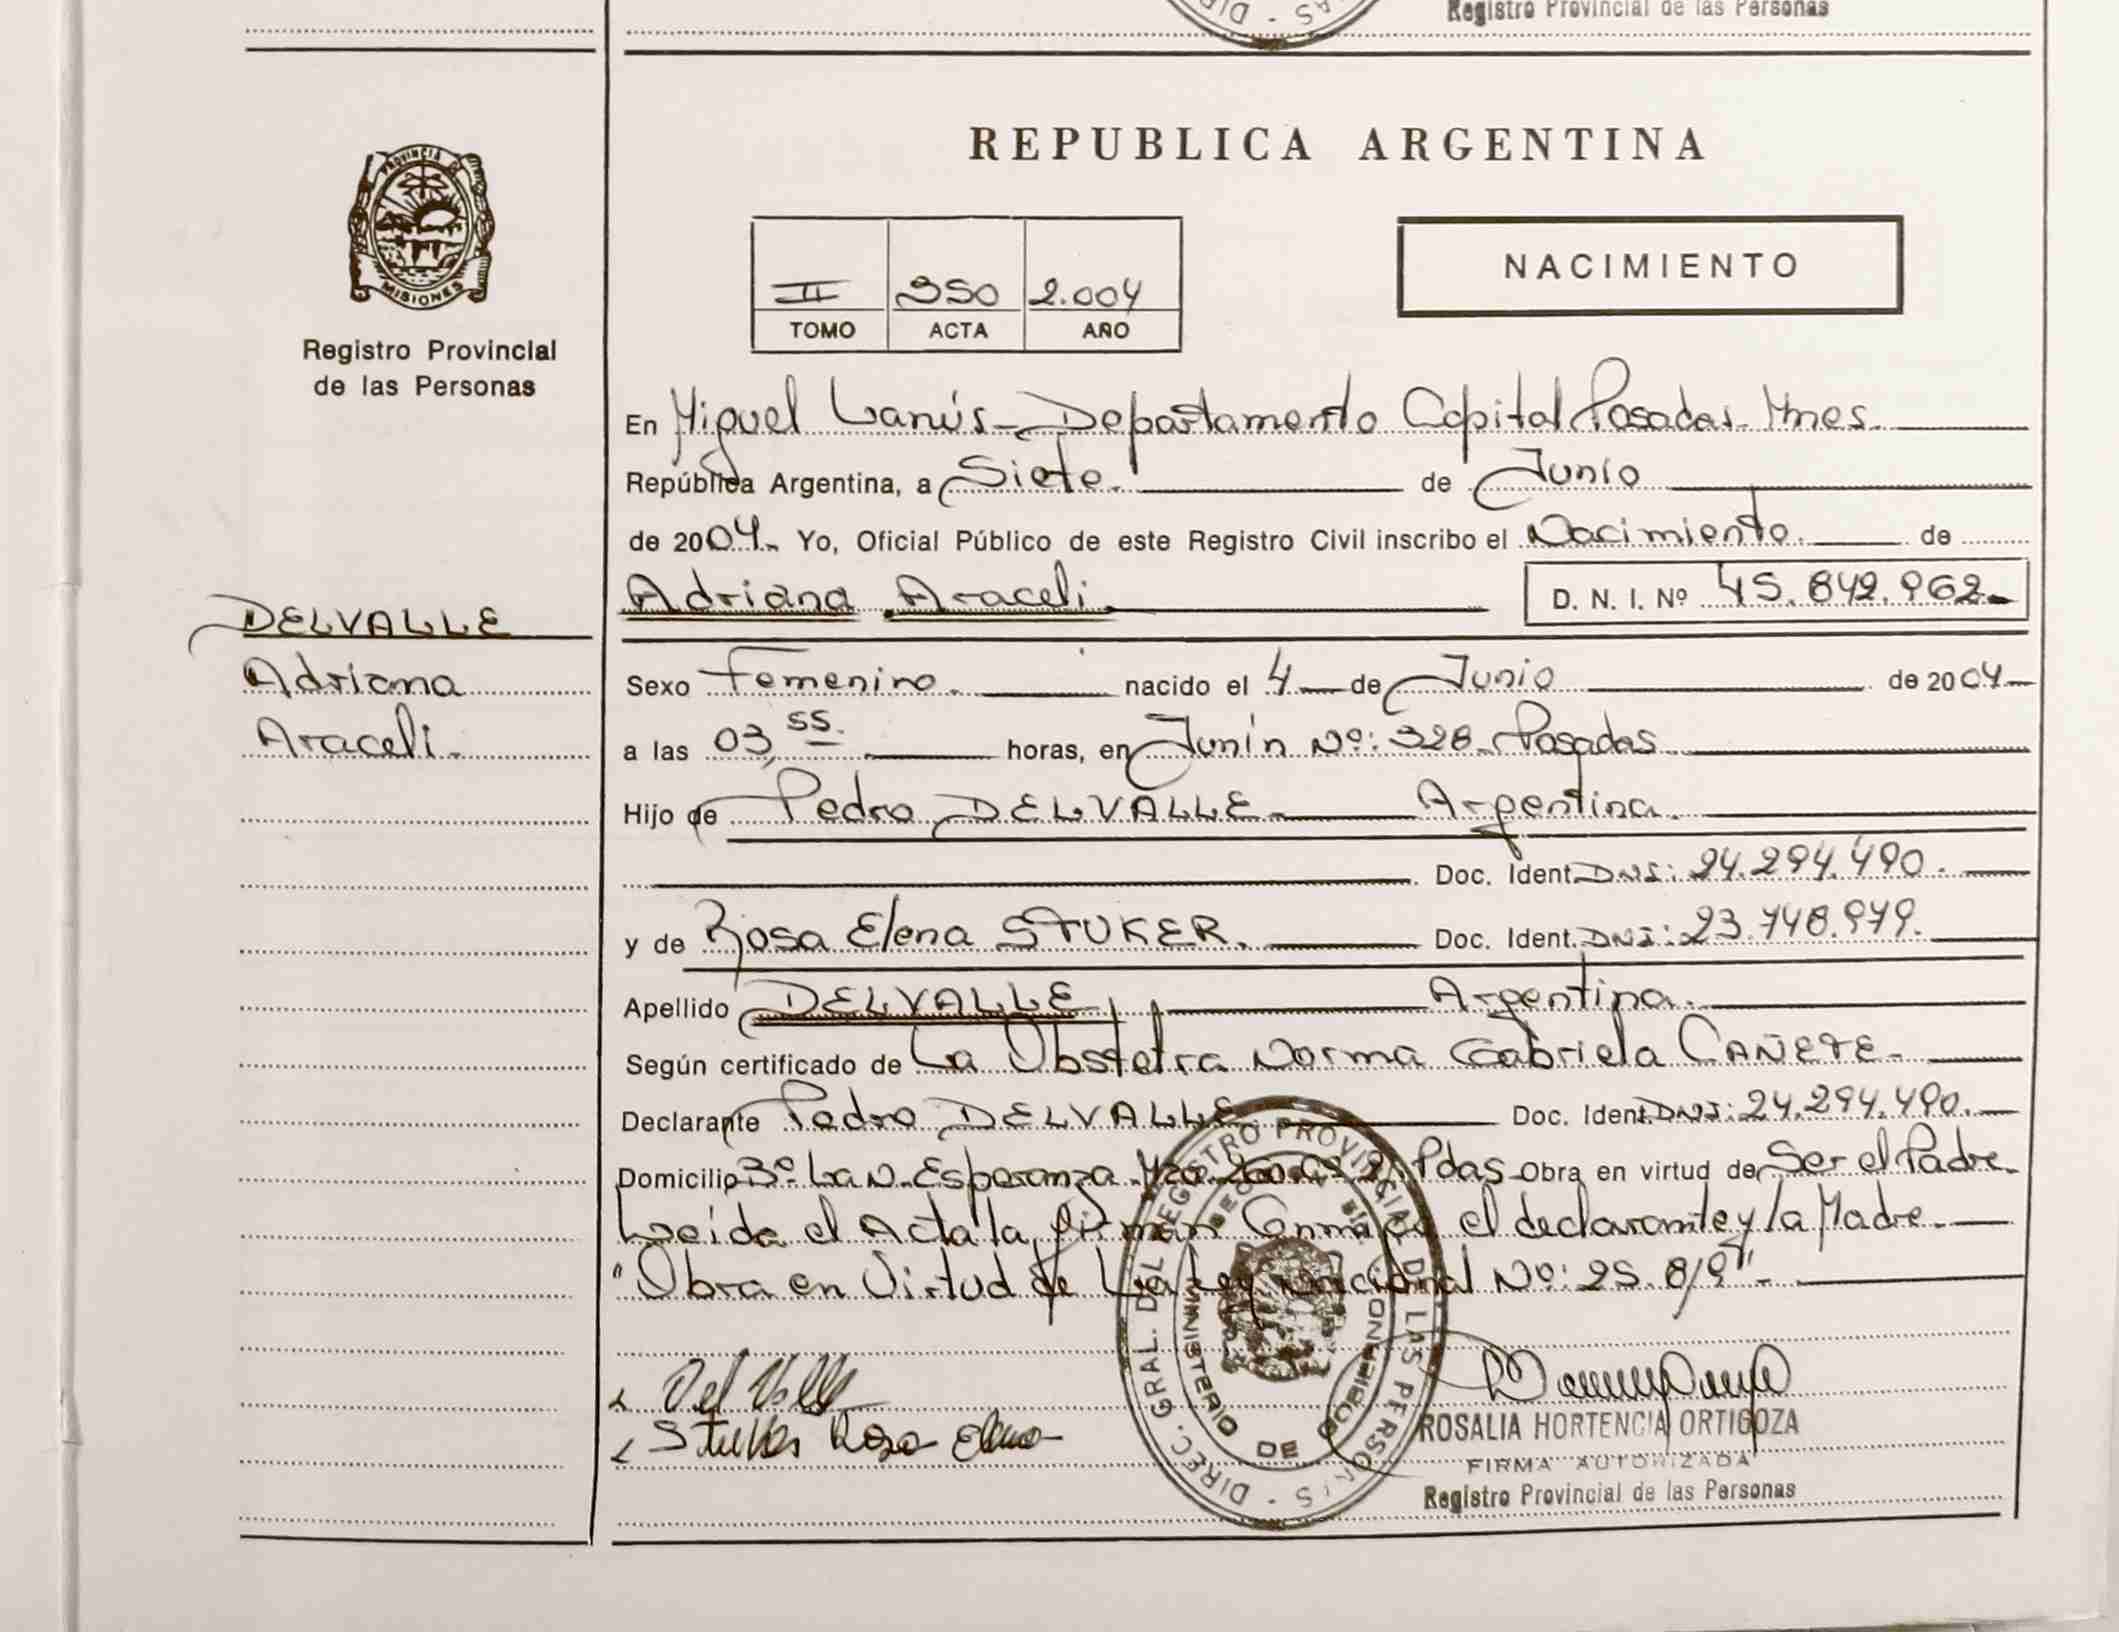 Registro Provincial de las Personas
REPUBLICA ARGENTINA
PROVINCIA DE
MISIONES
Registro Provincial
de las Personas
II 350 2.004
TOMO ACTA AÑO
NACIMIENTO
En Miguel Lanús - Departamento Capital Posadas - Mnes.
República Argentina, a Siete. de Junio
de 2004. Yo, Oficial Público de este Registro Civil inscribo el Nacimiento. de
Adriana Araceli D. N. I. Nº 45.842.962
DELVALLE
Adriana
Araceli.
Sexo Femenino. nacido el 4 de Junio de 2004
a las 03,55. horas, en Junín Nº: 328 - Posadas
Hijo de Pedro DELVALLE Argentina.
Doc. Ident. DNI: 24.294.490.
y de Rosa Elena STUKER. Doc. Ident. DNI: 23.748.979.
Apellido DELVALLE Argentina.
Según certificado de La Obstetra Norma Gabriela CAÑETE
Declarante Pedro DELVALLE Doc. Ident. DNI: 24.294.490.
Domicilio Bº. La N. Esperanza Mza. 260 Pdas Obra en virtud de Ser el Padre
Leída el Acta la firman el declarante y la Madre.
"Obra en Virtud de La Ley Nacional Nº: 25.819"
Del Valle
Stuker Rosa Elena
DIREC. GRAL. DEL REGISTRO PROVINCIAL DE LAS PERSONAS
MINISTERIO DE GOBIERNO
ROSALIA HORTENCIA ORTIGOZA
FIRMA AUTORIZADA
Registro Provincial de las Personas